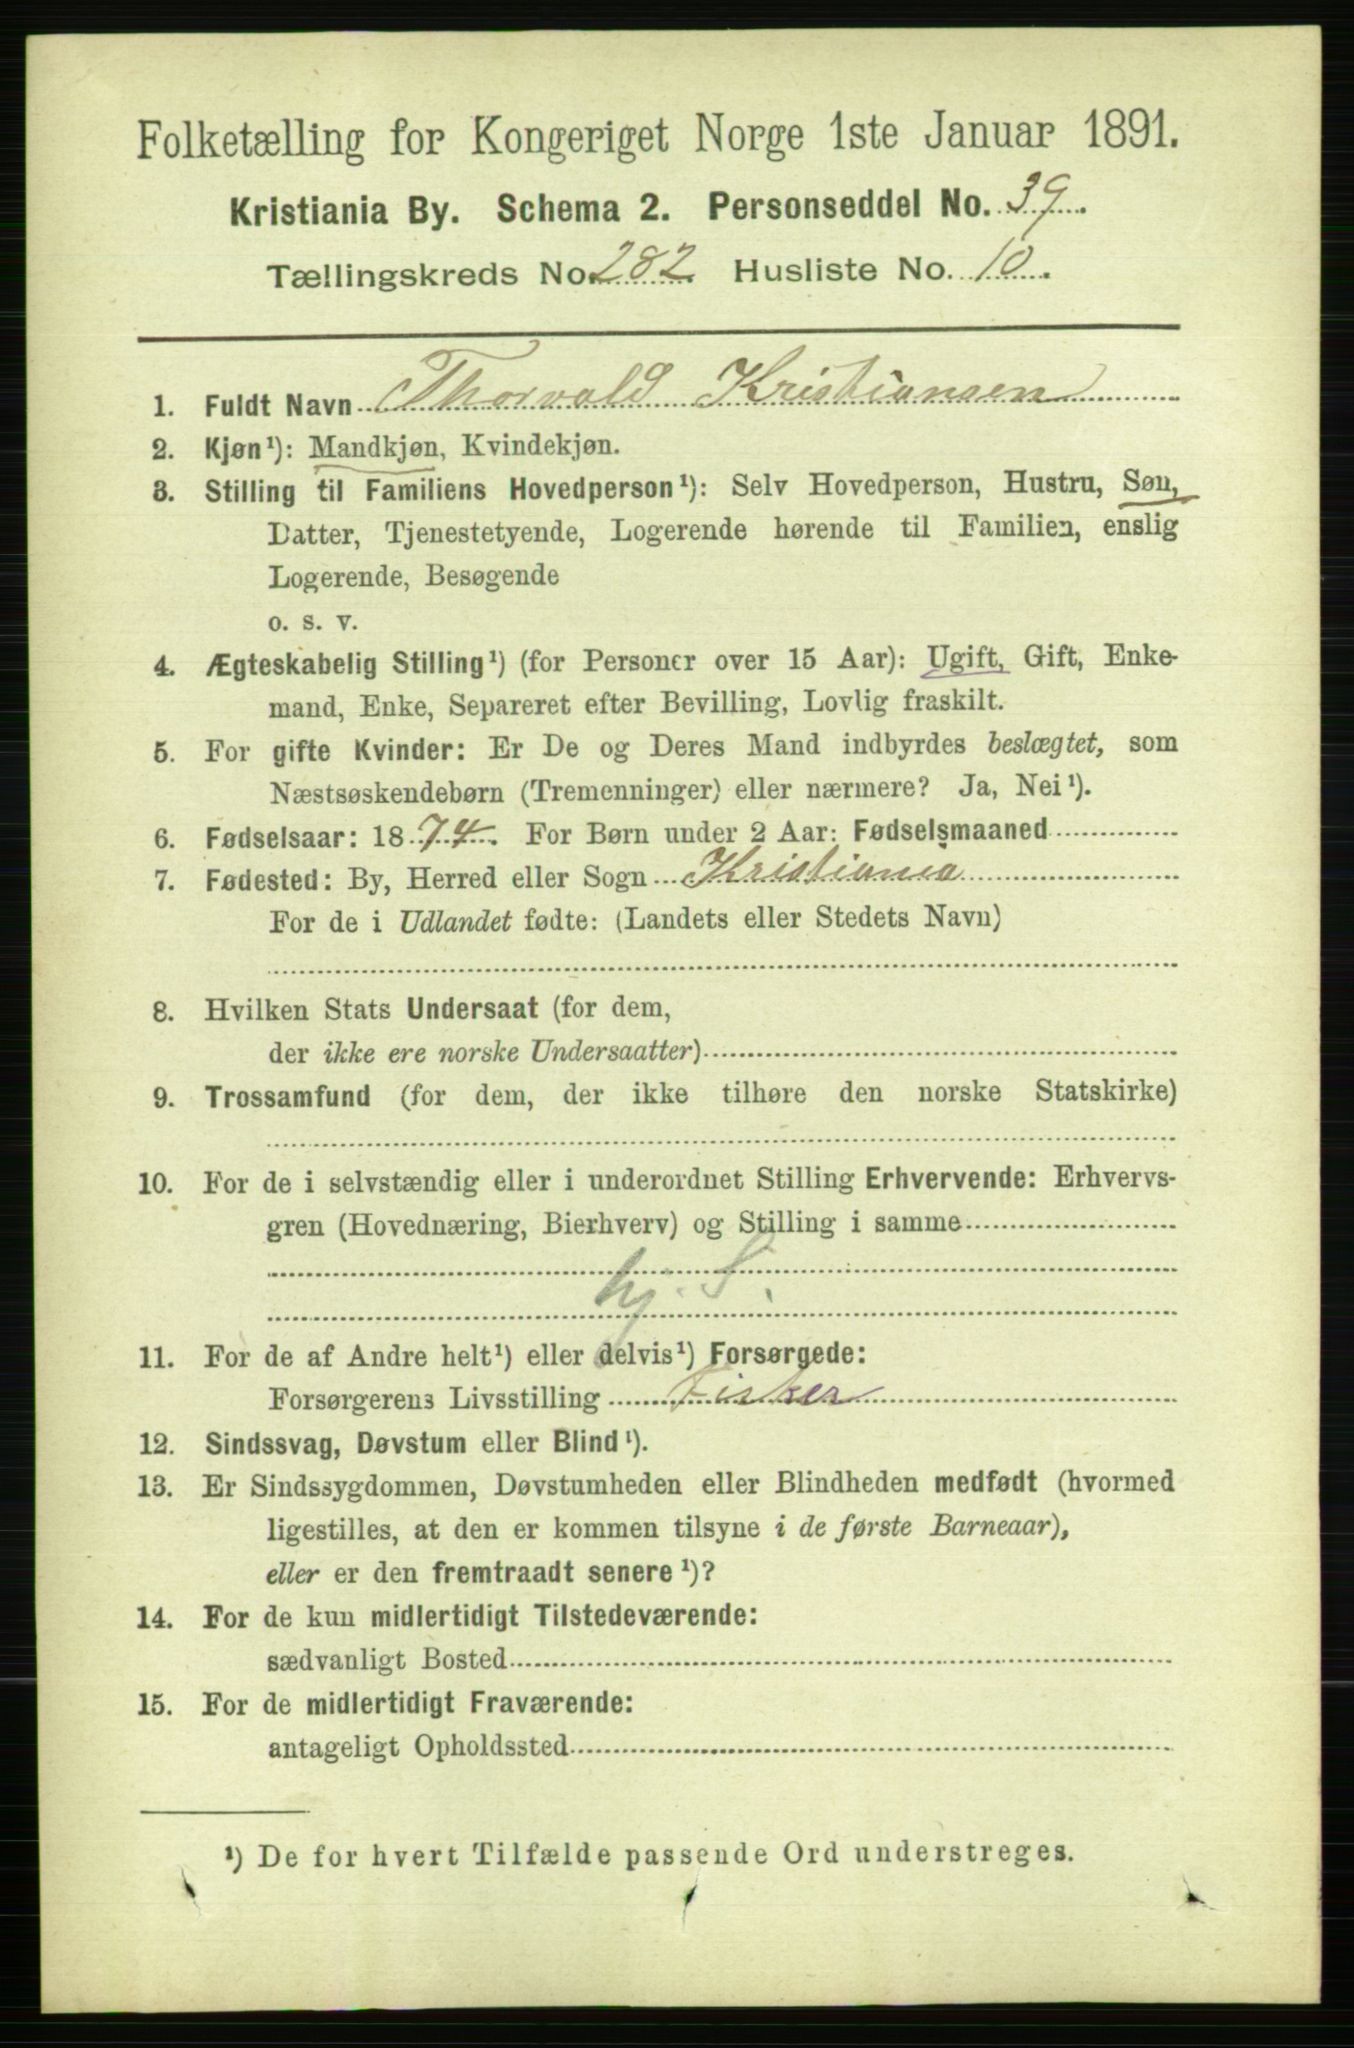 Folketælling for Kongeriget Norge 1ste Januar 1891.
Kristiania By. Schema 2. Personseddel No. 39.
Tællingskreds No. 282. Husliste No. 10.
1. Fuldt Navn Thorvald Kristiansen
2. Kjøn¹): Mandkjøn, Kvindekjøn.
3. Stilling til Familiens Hovedperson¹): Selv Hovedperson, Hustru, Søn,
Datter, Tjenestetyende, Logerende hørende til Familien, enslig
Logerende, Besøgende
o. s. v.
4. Ægteskabelig Stilling¹) (for Personer over 15 Aar): Ugift, Gift, Enke-
mand, Enke, Separeret efter Bevilling, Lovlig fraskilt.
5. For gifte Kvinder: Er De og Deres Mand indbyrdes beslægtet, som
Næstsøskendebørn (Tremenninger) eller nærmere? Ja, Nei¹).
6. Fødselsaar: 1874. For Børn under 2 Aar: Fødselsmaaned
7. Fødested: By, Herred eller Sogn Kristiania
For de i Udlandet fødte: (Landets eller Stedets Navn)
8. Hvilken Stats Undersaat (for dem,
der ikke ere norske Undersaatter)
9. Trossamfund (for dem, der ikke tilhøre den norske Statskirke)
10. For de i selvstændig eller i underordnet Stilling Erhvervende: Erhvervs-
gren (Hovednæring, Bierhverv) og Stilling i samme
hj. S.
11. For de af Andre helt¹) eller delvis¹) Forsørgede:
Forsørgerens Livsstilling Fisker
12. Sindssvag, Døvstum eller Blind¹).
13. Er Sindssygdommen, Døvstumheden eller Blindheden medfødt (hvormed
ligestilles, at den er kommen tilsyne i de første Barneaar),
eller er den fremtraadt senere¹)?
14. For de kun midlertidigt Tilstedeværende:
sædvanligt Bosted
15. For de midlertidigt Fraværende:
antageligt Opholdssted
¹) De for hvert Tilfælde passende Ord understreges.